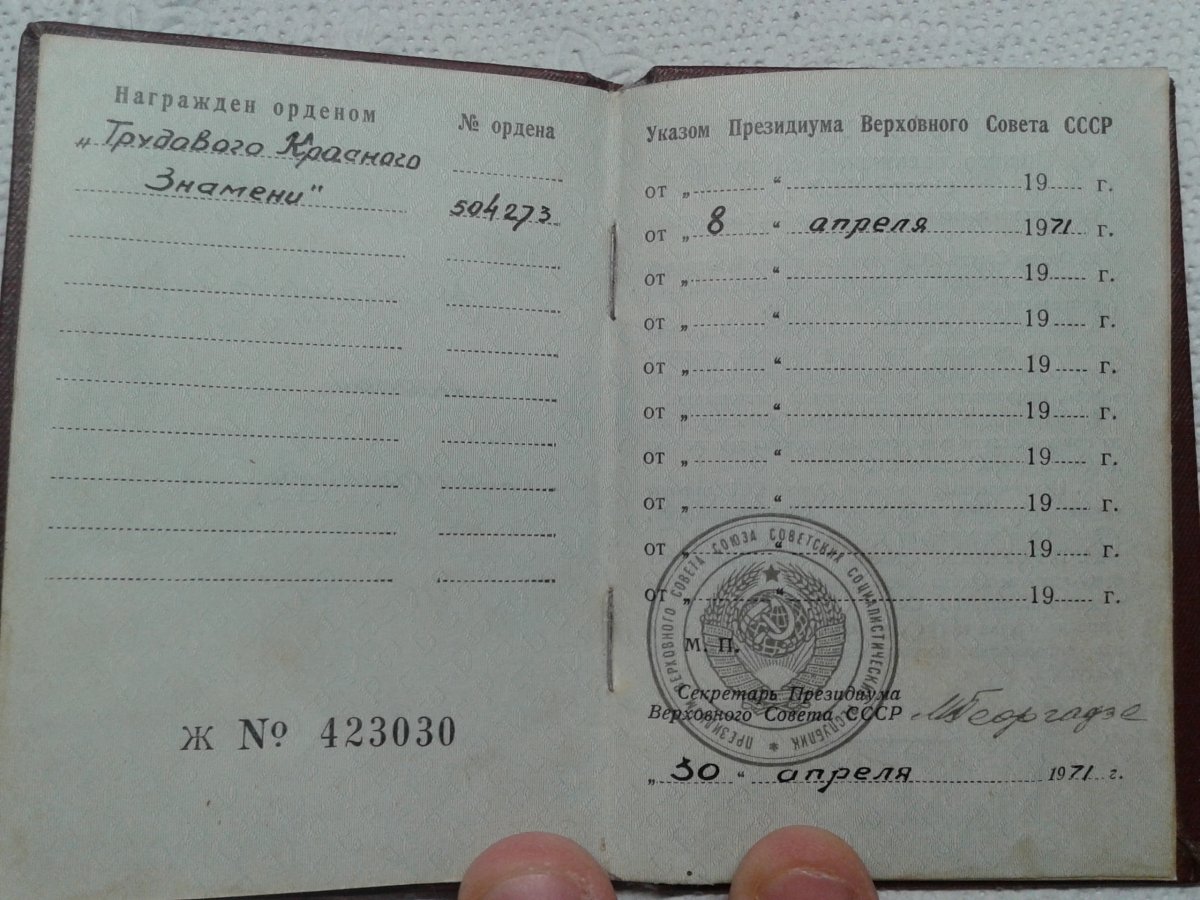 Награжден орденом
№ ордена
„Трудового Красного
Знамени"
504273
Ж № 423030
Указом Президиума Верховного Совета СССР
от „ “ 19 г.
от „ 8 “ апреля 1971 г.
от „ “ 19 г.
от „ “ 19 г.
от „ “ 19 г.
от „ “ 19 г.
от „ “ 19 г.
от „ “ 19 г.
от „ “ 19 г.
от „ “ 19 г.
ПРЕЗИДИУМ ВЕРХОВНОГО СОВЕТА СОЮЗА СОВЕТСКИХ СОЦИАЛИСТИЧЕСКИХ РЕСПУБЛИК
М. П.
Секретарь Президиума
Верховного Совета СССР
МГеоргадзе
„ 30 “ апреля 1971 г.